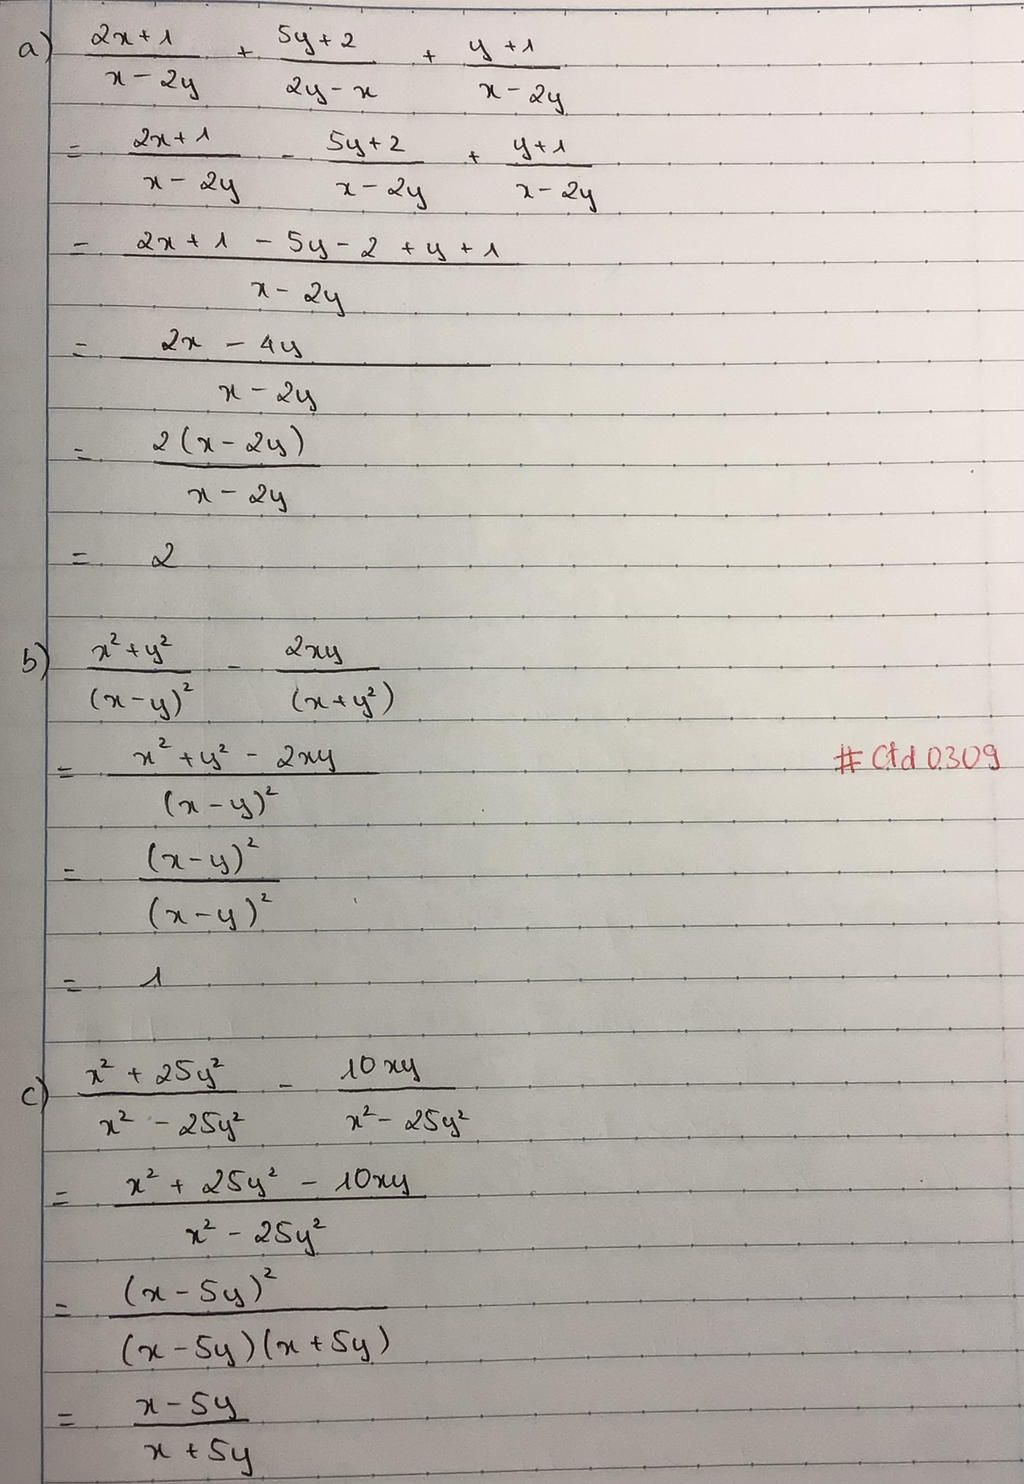 a) (2x+1)/(x-2y) + (5y+2)/(2y-x) + (y+1)/(x-2y)
= (2x+1)/(x-2y) - (5y+2)/(x-2y) + (y+1)/(x-2y)
= (2x+1-5y-2+y+1)/(x-2y)
= (2x-4y)/(x-2y)
= 2(x-2y)/(x-2y)
= 2
b) (x²+y²)/(x-y)² - 2xy/(x+y²)
= (x²+y²-2xy)/(x-y)²
#Ctd0309
= (x-y)²/(x-y)²
= 1
c) (x²+25y²)/(x²-25y²) - 10xy/(x²-25y²)
= (x²+25y²-10xy)/(x²-25y²)
= (x-5y)²/(x-5y)(x+5y)
= (x-5y)/(x+5y)